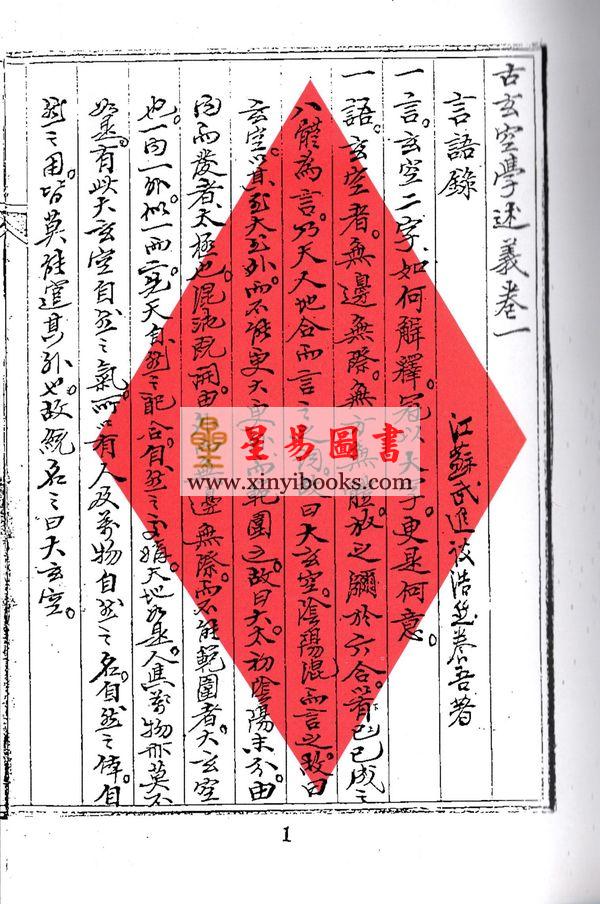 古玄空學述義卷一
言語錄
江蘇武進 浩 養吾著
一言。玄空二字、如何解釋。冠以大字。更是何意。
一語。玄空者。無邊無際。無方無體。放之彌於六合。 已成之
八體為言。乃天人地合而言之 曰大玄空。陰陽混而言之。故曰
玄空。 其至大至外。而不能更大 範圍之。故曰大。太初陰陽未分。由
內而發者。太極也。混沌既開。由 無邊無際。而不能範圍者。大玄空
也。一內一外。似一而二。 天自然之配合。自然之交媾。天地如是。人與萬物亦莫不
如是。有此大玄空自然之氣。而 有人及萬物自然之名。自然之體。自
然之用。皆莫能 其外也。故統名之曰大玄空。
星易圖書
www.xinyibooks.com
1